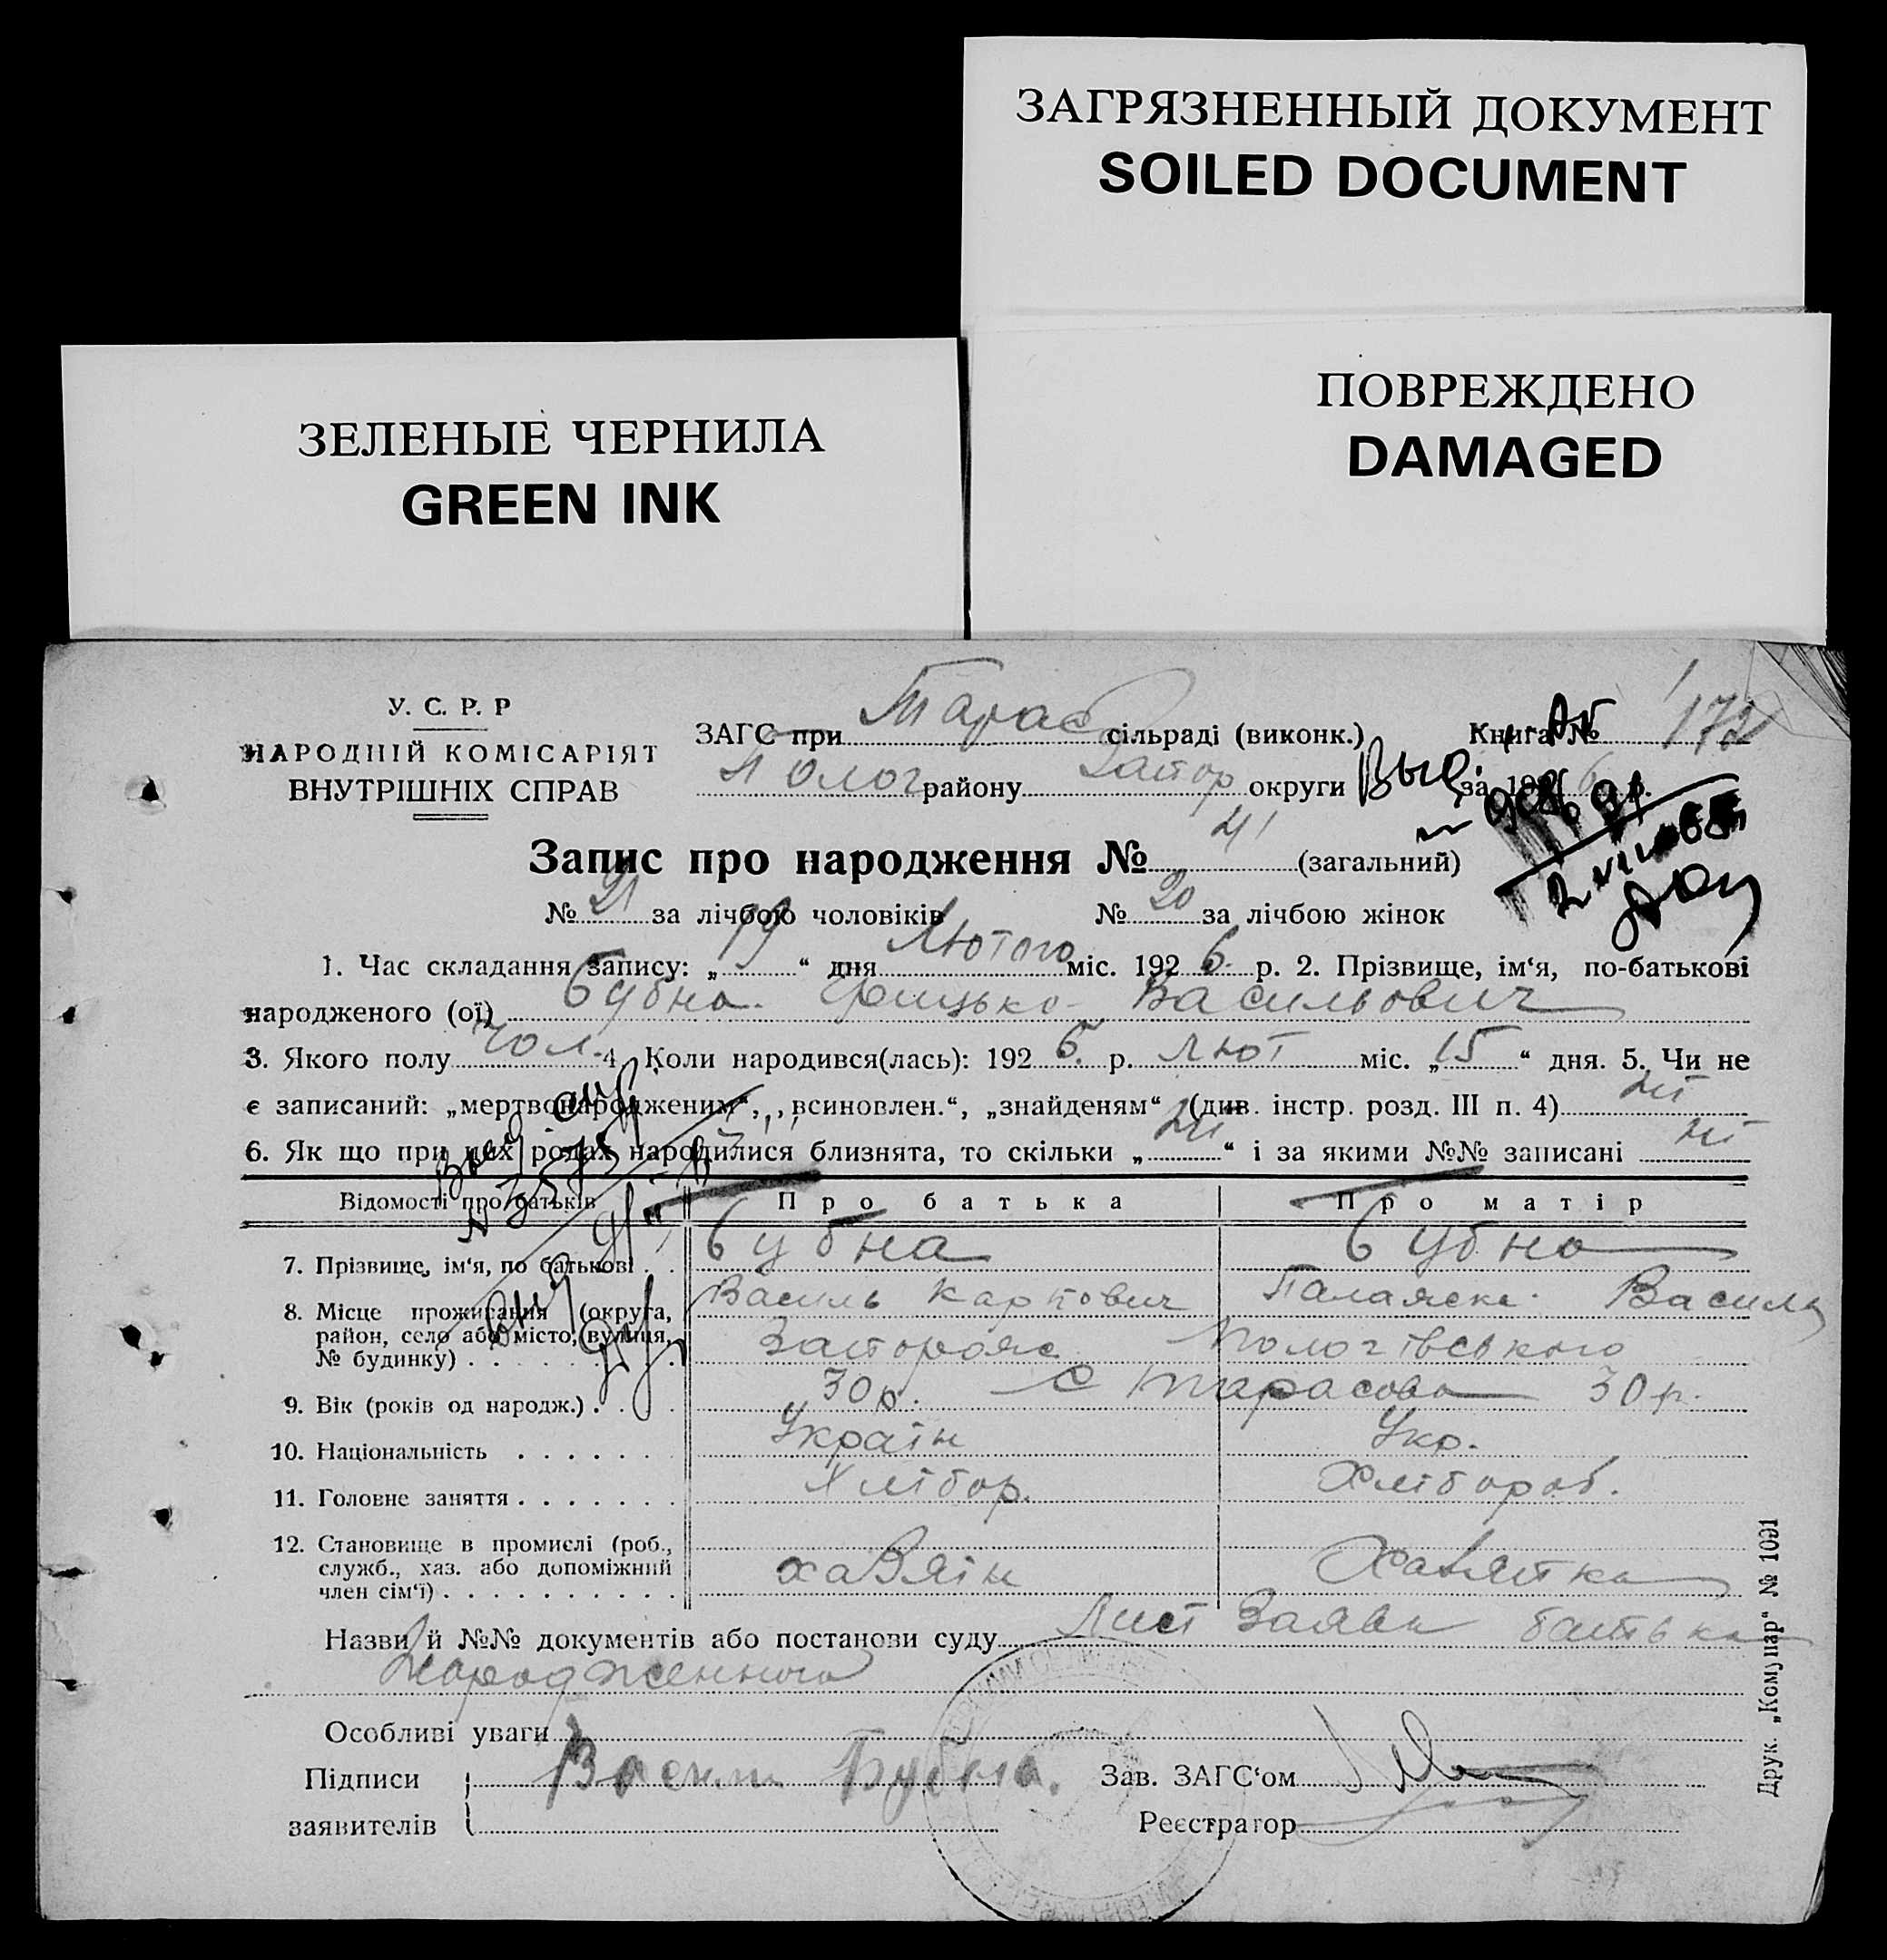 ЗАГРЯЗНЕННЫЙ ДОКУМЕНТ
SOILED DOCUMENT
ЗЕЛЕНЫЕ ЧЕРНИЛА
GREEN INK
ПОВРЕЖДЕНО
DAMAGED
У. С. Р. Р
НАРОДНІЙ КОМІСАРІЯТ
ВНУТРІШНІХ СПРАВ
ЗАГС при Тарас сільраді (виконк.) Книга №
Полог району Запор округи за 192 6 р.
Запис про народження № 41 (загальний)
№ 21 за лічбою чоловіків № 20 за лічбою жінок
1. Час складання запису: „ 19 “ дня Лютого міс. 192 6 р. 2. Прізвище, ім‘я, по-батькові
народженого (ої) Бубна Грицько Васильович
3. Якого полу чол. 4. Коли народився(лась): 192 6. р. Лют міс. „ 15 “ дня. 5. Чи не
є записаний: „мертвонародженим“, „всиновлен.“, „знайденям“ (див. інстр. розд. III п. 4) ні
6. Як що при цих родах народилися близнята, то скільки „ ні “ і за якими №№ записані ні
Відомості про батьків Про батька Про матір
7. Прізвище, ім‘я, по батькові . . Бубна Бубна
Василь Карпович Палажка Васил
8. Місце проживання (округа,
район, село або місто, вулиця,
№ будинку) Запорожс Пологівського
с Тарасовка
9. Вік (років од народж.) 30 р. 30 р.
10. Національність Україн Укр.
11. Головне заняття Хлібор. Хлібороб.
12. Становище в промислі (роб.,
служб., хаз. або допоміжний
член сім‘ї) хазяін Хазяйка
Назви й №№ документів або постанови суду Лист Заява батька
Народженного
Особливі уваги
Підписи Василь Бубна. Зав. ЗАГС‘ом
заявителів Реєстратор
Друк. „Комунар“ № 1091